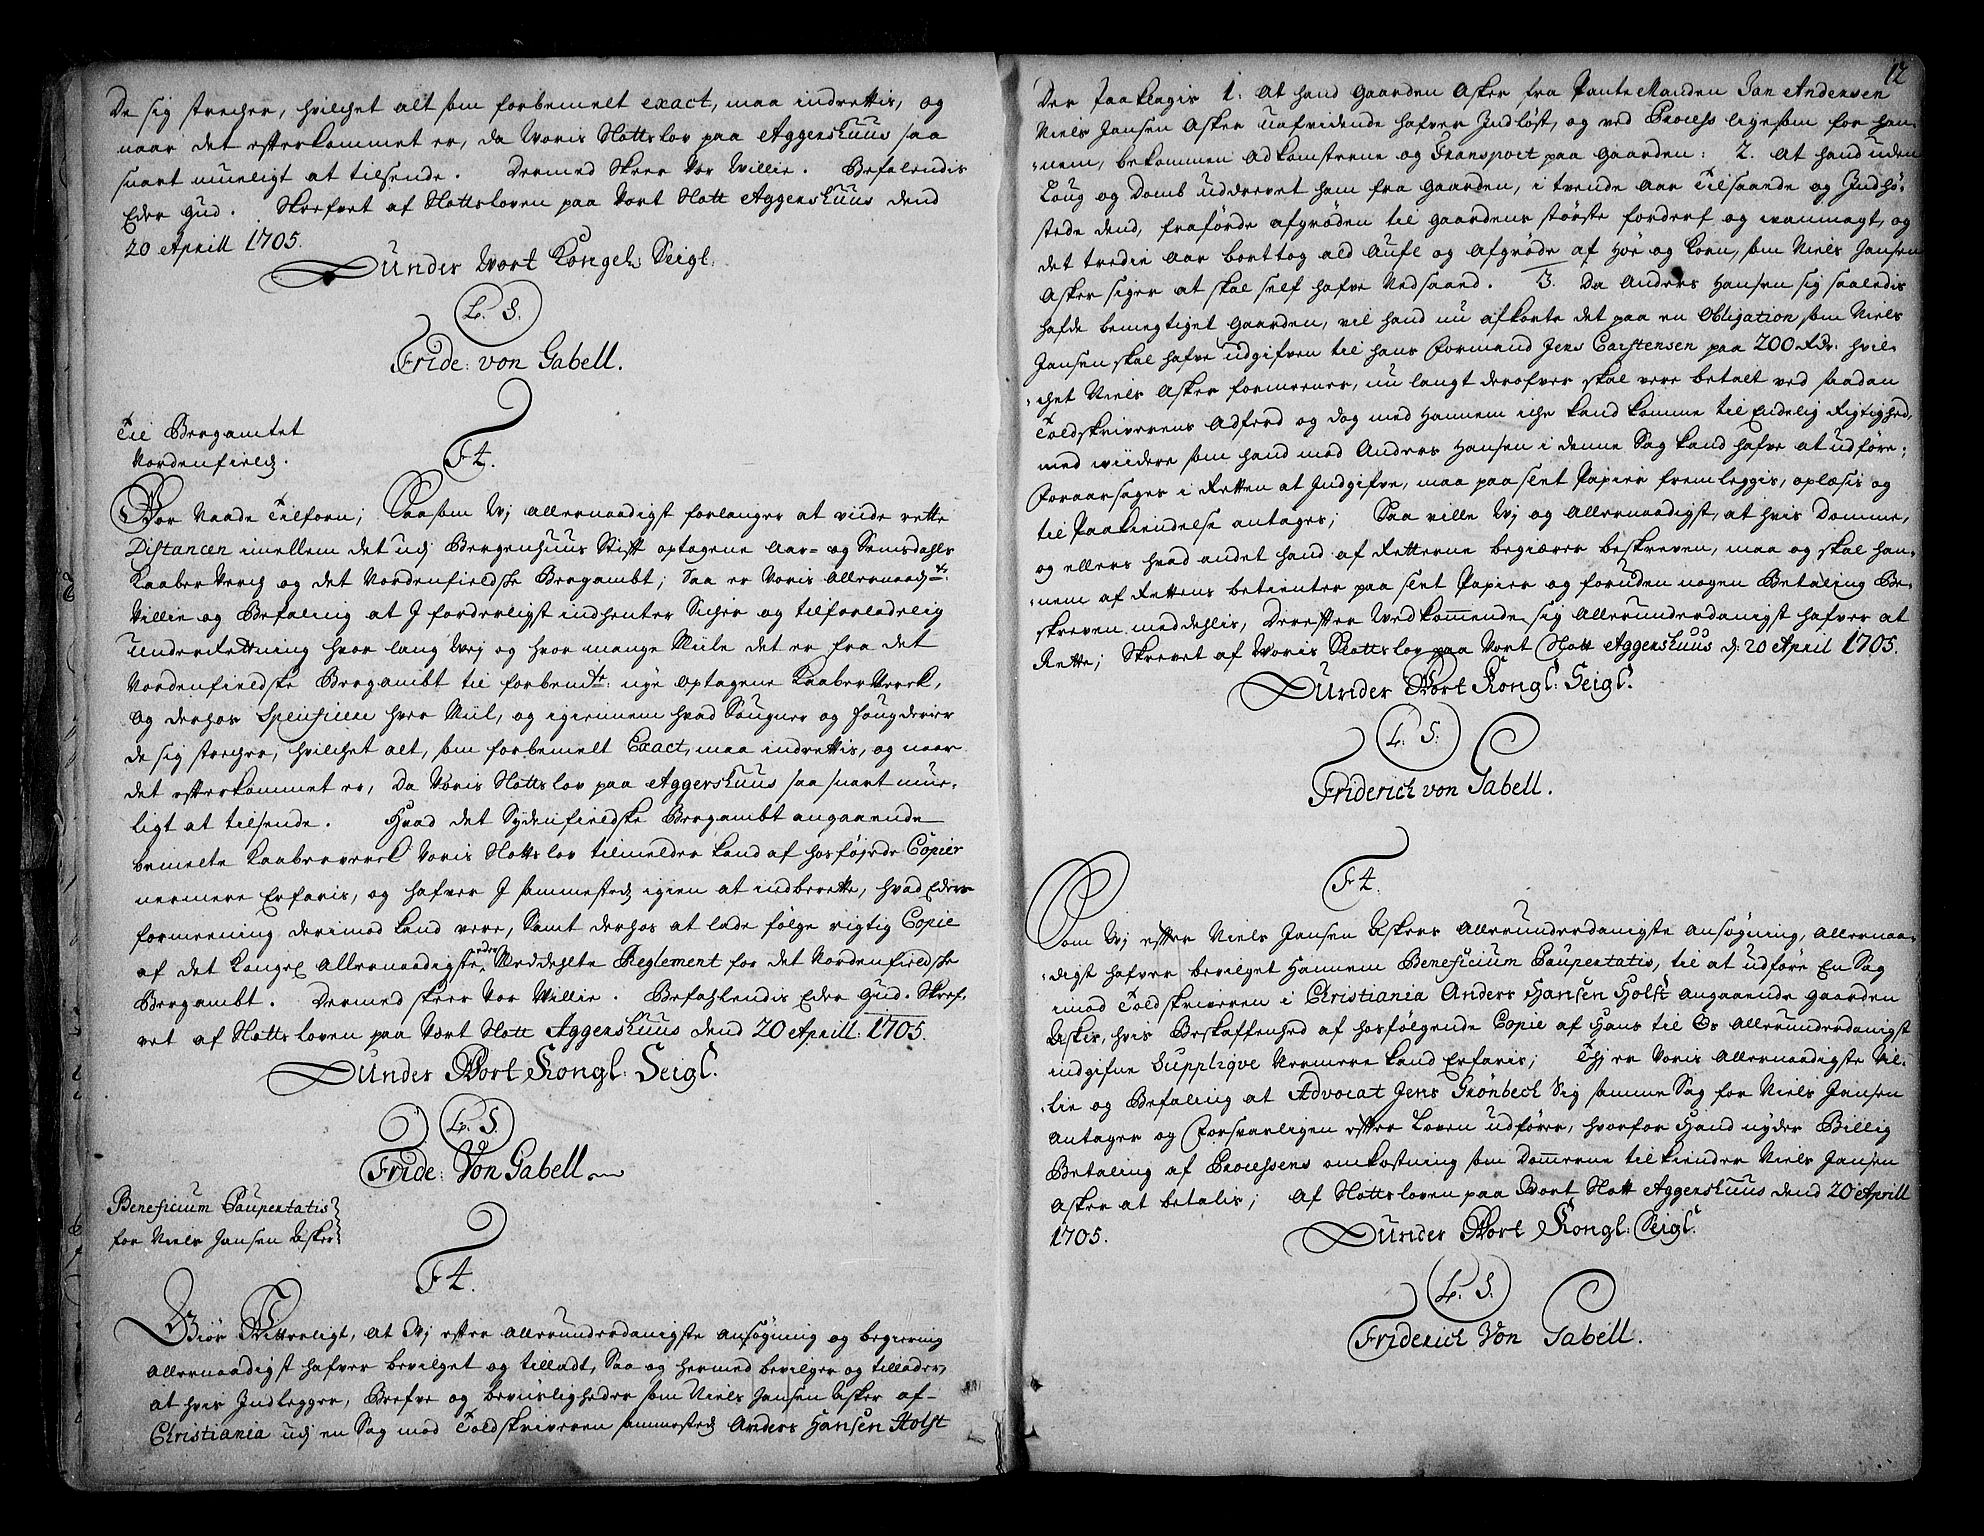 De sig strecher, hvilchet alt som forbemelt exact, maa indrettis, og
naar det efterkommet er, da Woris Slottslov paa Aggershuus saa
snart mueligt at tilsende. Dermed Skeer Vor Willie. Befalendis
Eder Gud. Skrefvet af Slottsloven paa Vort Slott Aggershuus dend
20 Aprill 1705.
Under Wort Kongel: Seigl:
L. S.
Fride: von Gabell.
Til Bergamtet
Nordenfields.
F4.
Vor Naade Tilforn; Saasom Wj allernaadigst forlanger at viide rette
Distancen imellem det udj Bergenhuus Stift optagene Aar- og Semsdahls
Kaaber Verch og det Nordenfieldsche Bergambt; Saa er Voris Allernaadte:
Villie og Befaling at J forderligst indhenter Sicher og tilforladelig
Underrettning hvor lang Wej og hvor mange Miile det er fra det
Nordenfieldske Bergambt til forbemte: nye optagene Kaaber Werck,
og derhos Specificere hver Miil, og igiennem hvad Sougner og fougderier
de sig strecher, hvilchet alt, som forbemelt Exact, maa indrettis, og naar
det efterkommet er, Da Voris Slottslov paa Aggershuus saa snart mue-
ligt at tilsende. Hvad det Sydenfieldske Bergambt angaaende
bemelte Kaaberverck Voris Slottslov tilmelder kand af hosføyede Copier
nermere Erfaris, og hafver J sammesteds igien at indberette, hvad Eders
formeening derimod kand vere, Samt derhos at lade følge rigtig Copie
af det Kongel Allernaadigste eder Meddeelte Reglement for det Nordenfieldsche
Bergambt. Dermed skeer Vor Willie. Befahlendis Eder Gud. Skref-
vet af Slottsloven paa Vort Slott Aggershuus dend 20 Aprill: 1705.
Under Vort Kongl: Seigl.
L. S.
Fride: Von Gabell.
Beneficium Paupertatis
for Niels Jansen Asker
F4.
Giør Vitterligt, at Wj efter allerunderdanigste ansøgning og begiering
allernaadigst hafver bevilget og tilladt, Saa og hermed bevilger og tillader,
at hvis Indlegger, Brefve og beviisligheder som Niels Jansen Asker af
Christiania udj en Sag mod Toldskriveren sammesteds Anders Hansen Holst
12
Der paaklagis 1. At hand Gaarden Asker fra PanteManden Jan Andersen
Niels Jansen Asker uafvidende hafver Indløst, og ved Process ligesom for han-
nem, bekommen adkomsterne og Transport paa Gaarden: 2. At hand uden
Loug og Domb uddrevet ham fra Gaarden, i tvende aar Tilsaande og Indhø-
stede dend, fraførde afgrøden til Gaardens største forderf og vanmagt, og
det tredie aar borttog ald Aufl og Afgrøde af Høe og Korn, som Niels Jansen
Asker siger at skal self hafve Nedsaaed. 3. Da Anders Hansen sig saaledis
hafde bemegtiget Gaarden, vil hand nu afkorte det paa en Obligation som Niels
Jansen skal hafve udgifven til hans Formand Jens Carstensen paa 200 Rdr: hvil-
chet Niels Asker formeener, nu langt derofver skal vere betalt ved saadan
Toldskriverens Adferd og dog med Hannem iche kand komme til Endelig Rigtighed,
med wiidere som hand mod Anders Hansen i denne Sag kand hafve at udføre;
foraarsages i Retten at Indgifve, maa paa slet Papier fremleggis, oplæsis og
til Paakiendelse antages; Saa ville Wj og Allernaadigst, at hvis Domme,
og ellers hvad andet hand af Retterne begiærer beskreven, maa og skal han-
nem af Rettens betienter paa slet Papier og foruden nogen Betaling Be-
skreven meddehlis, Derefter Wedkommende sig Allerunderdanigst hafver at
Rette; Skrevet af Woris Slottslov paa Vort Slott Aggershuus d: 20 April 1705.
Under Vort Kongl: Seigl.
L. S.
Friderich von Gabell.
F4.
Som Wj efter Niels Jansen Askers Allerunderdanigste ansøgning, allernaa-
digst hafver bevilget Hannem Beneficium Paupertatis, til at udføre En Sag
imod Toldskriveren i Christiania Anders Hansen Holst angaaende Gaarden
Asker, hvis Beskaffenhed af hosfølgende Copie af Hans til Os Allerunderdanigst
indgifne Supplique Nermere kand Erfaris; Thj er Voris Allernaadigste Vil-
lie og Befaling at Advocat Jens Grønbech Sig samme Sag for Niels Jansen
Antager og Forsvarligen efter Loven udfører, hvorfor Hand nyder Billig
Betaling af Processens omkostning som Dommerne tilkiender Niels Jansen
Asker at betalis; Af Slottsloven paa Vort Slott Aggershuus dend 20 Aprill
1705.
Under Vort Kongl: Seigl.
L. S.
Friderich Von Gabell.